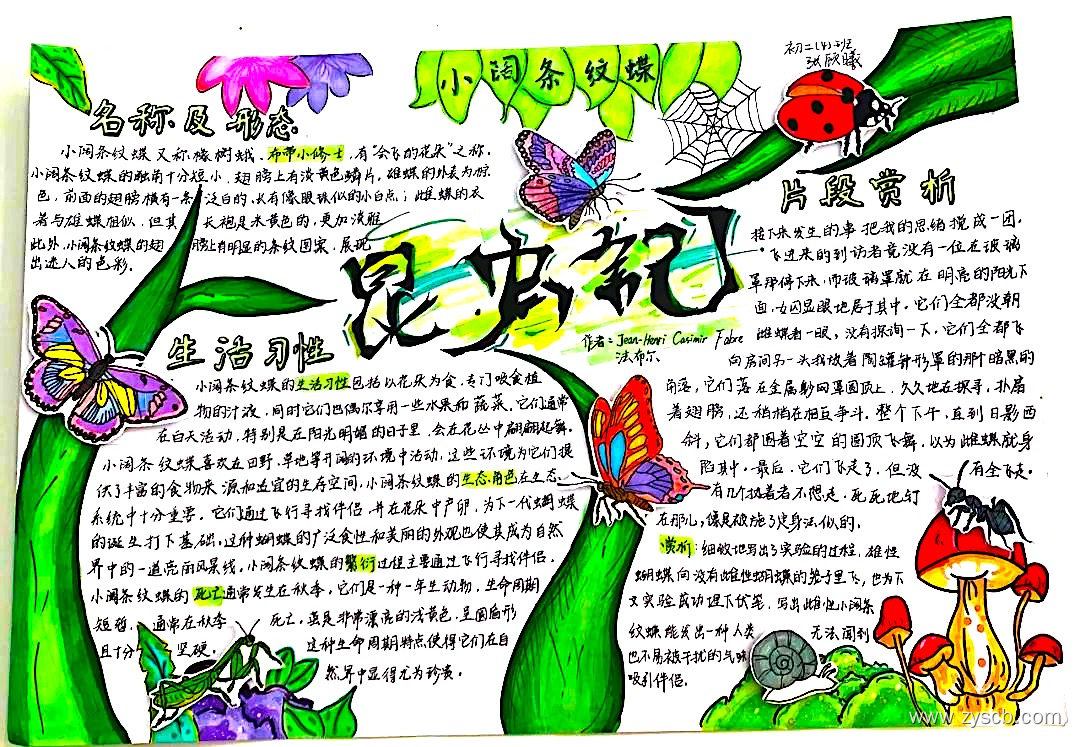 小阔条纹蝶
初二(4)班
张欣曦
名称及形态
小阔条纹蝶又称橡树蛾、布带小修士,有“会飞的花朵”之称。
小阔条纹蝶的触角十分短小,翅膀上有淡黄色鳞片。雄蝶的外表为棕
色,前面的翅膀横有一条泛白的,长有像眼珠似的小白点;雌蝶的衣
着与雄蝶相似,但其长袍是米黄色的,更加淡雅
此外,小阔条纹蝶的翅膀上有明显的条纹图案,展现
出迷人的色彩。
昆虫记
作者:Jean-Henri Casimir Fabre
法布尔
生活习性
小阔条纹蝶的生活习性包括以花朵为食,专门吸食植
物的汁液,同时它们也偶尔享用一些水果和蔬菜。它们通常
在白天活动,特别是在阳光明媚的日子里,会在花丛中翩翩起舞。
小阔条纹蝶喜欢在田野,草地等开阔的环境中活动,这些环境为它们提
供了丰富的食物来源和适宜的生存空间,小阔条纹蝶的生态角色在生态
系统中十分重要。它们通过飞行寻找伴侣,并在花朵中产卵,为下一代蝴蝶
的诞生打下基础,这种蝴蝶的广泛食性和美丽的外观也使其成为自然
界中的一道亮丽风景线,小阔条纹蝶的繁衍过程主要通过飞行寻找伴侣。
小阔条纹蝶的死亡通常发生在秋季,它们是一种一年生动物,生命周期
短暂,通常在秋季死亡,卵是非常漂亮的浅黄色,呈圆扁形
且十分坚硬。这种生命周期特点使得它们在自
然界中显得尤为珍贵。
片段赏析
接下来发生的事把我的思绪搅成一团。
飞进来的到访者竟没有一位在玻璃
罩那停下来,而玻璃罩就在明亮的阳光下
面,女囚显眼地居于其中。它们全都没朝
雌蝶看一眼,没有探询一下,它们全都飞
向房间另一头我放着陶罐钟形罩的那个暗黑的
角落,它们落在金属纱网罩圆顶上,久久地在探寻,扑扇
着翅膀,还稍稍在相互争斗。整个下午,直到日影西
斜,它们都围着空空的圆顶飞舞,以为雌蝶就身
陷其中。最后,它们飞走了,但没有全飞走。
有几个执着者不想走,死死地钉
在那儿,像是被施了定身法似的。
赏析:细致地写出了实验的过程,雄性
蝴蝶向没有雌性蝴蝶的笼子里飞,也为下
文实验成功埋下伏笔,写出雌性小阔条
纹蝶能发出一种人类无法闻到
也不易被干扰的气味
吸引伴侣。
www.zyscb.com